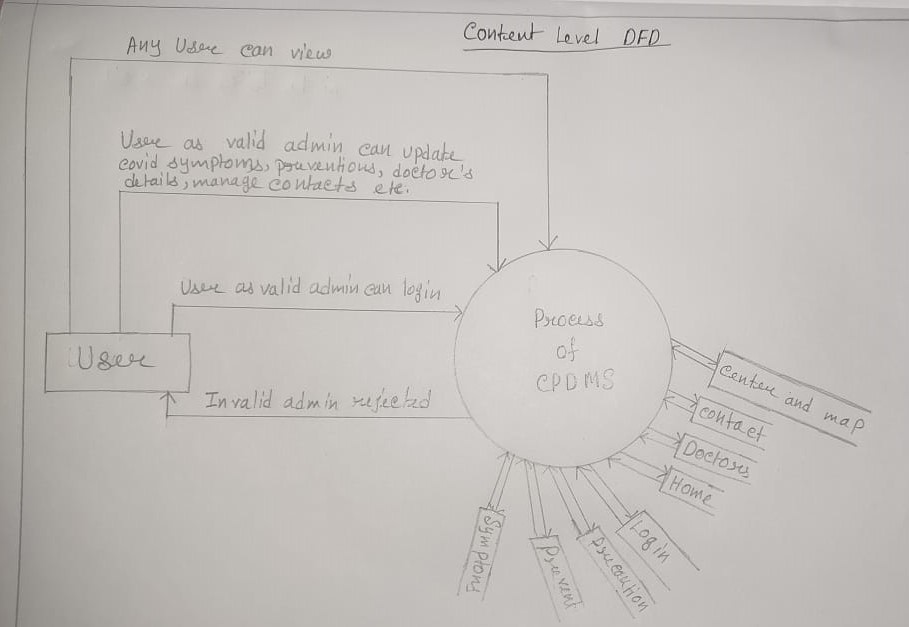 Content Level DFD
Any User can view
User as valid admin can update
covid symptoms, preventions, doctor's
details, manage contacts etc.
User as valid admin can login
Process
of
CPDMS
User
Invalid admin rejected
Center and map
contact
Doctors
Home
Login
Precaution
Prevent
Symptons